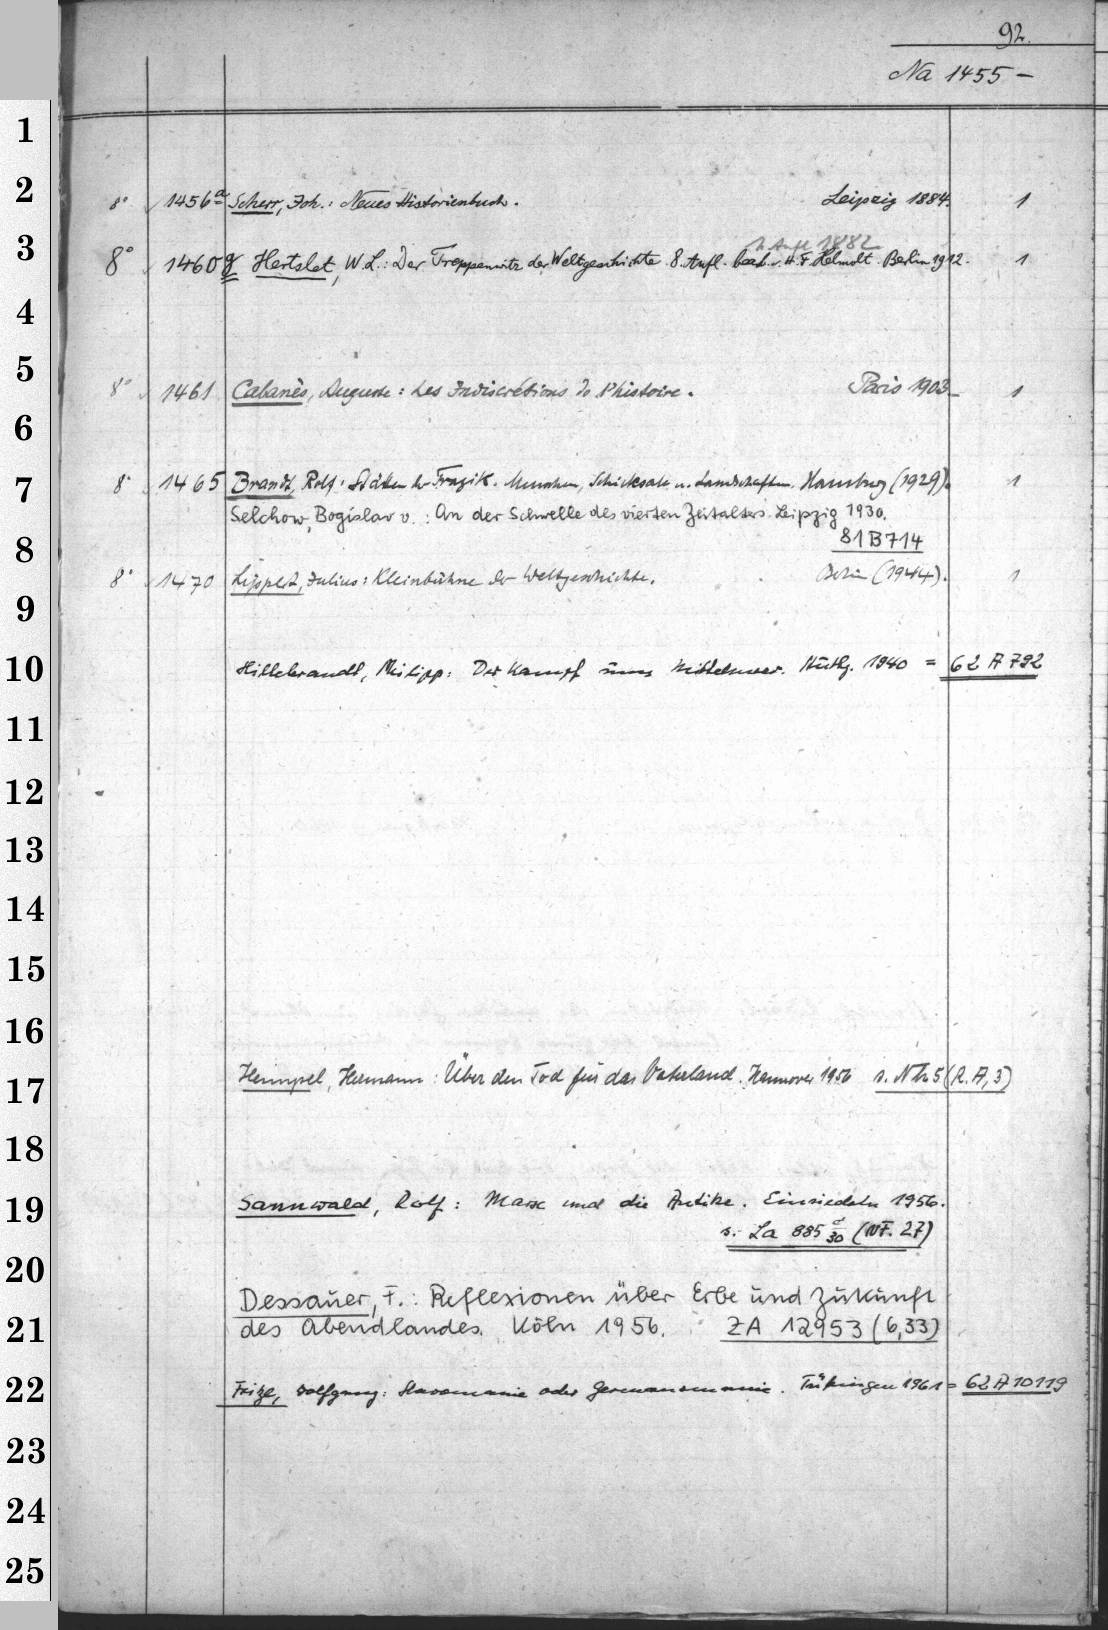 92.
Na 1455 –
1
2
8° 1456a Scherr, Joh.: Neues Historienbuch. Leipzig 1884. 1
3
Aufl 1882
8° 1460g Hertslet, W. L.: Der Treppenwitz der Weltgeschichte 8. Aufl. bearb. v. H. F. Helmolt. Berlin 1912. 1
4
5
8° 1461 Cabanès, Auguste: Les Indiscrétions de l'histoire. Paris 1903 1
6
7
8° 1465 Brandt, Rolf: Stätten der Tragik. Menschen, Schicksale u. Landschaften. Hamburg (1929). 1
Selchow, Bogislav v.: An der Schwelle des vierten Zeitalters. Leipzig 1930.
81 B 714
8
8° 1470 Lippert, Julius: Kleinbühne der Weltgeschichte. Berlin (1944). 1
9
10
Hillebrandt, Philipp: Der Kampf ums Mittelmeer. Stuttg. 1940 = 62 A 792
11
12
13
14
15
16
17
Heimpel, Hermann: Über den Tod für das Vaterland. Hannover 1956 s. 5 (R. A, 3)
18
19
Sannwald, Rolf: Marx und die Antike. Einsiedeln 1956.
s. La 885 d/30 (NF. 27)
20
Dessauer, F.: Reflexionen über Erbe und Zukunft
21
des Abendlandes. Köln 1956. ZA 12953 (6,33)
22
Fritze, Wolfgang: Slavomanie oder Germanomanie. Tübingen 1961 = 62 A 10119
23
24
25